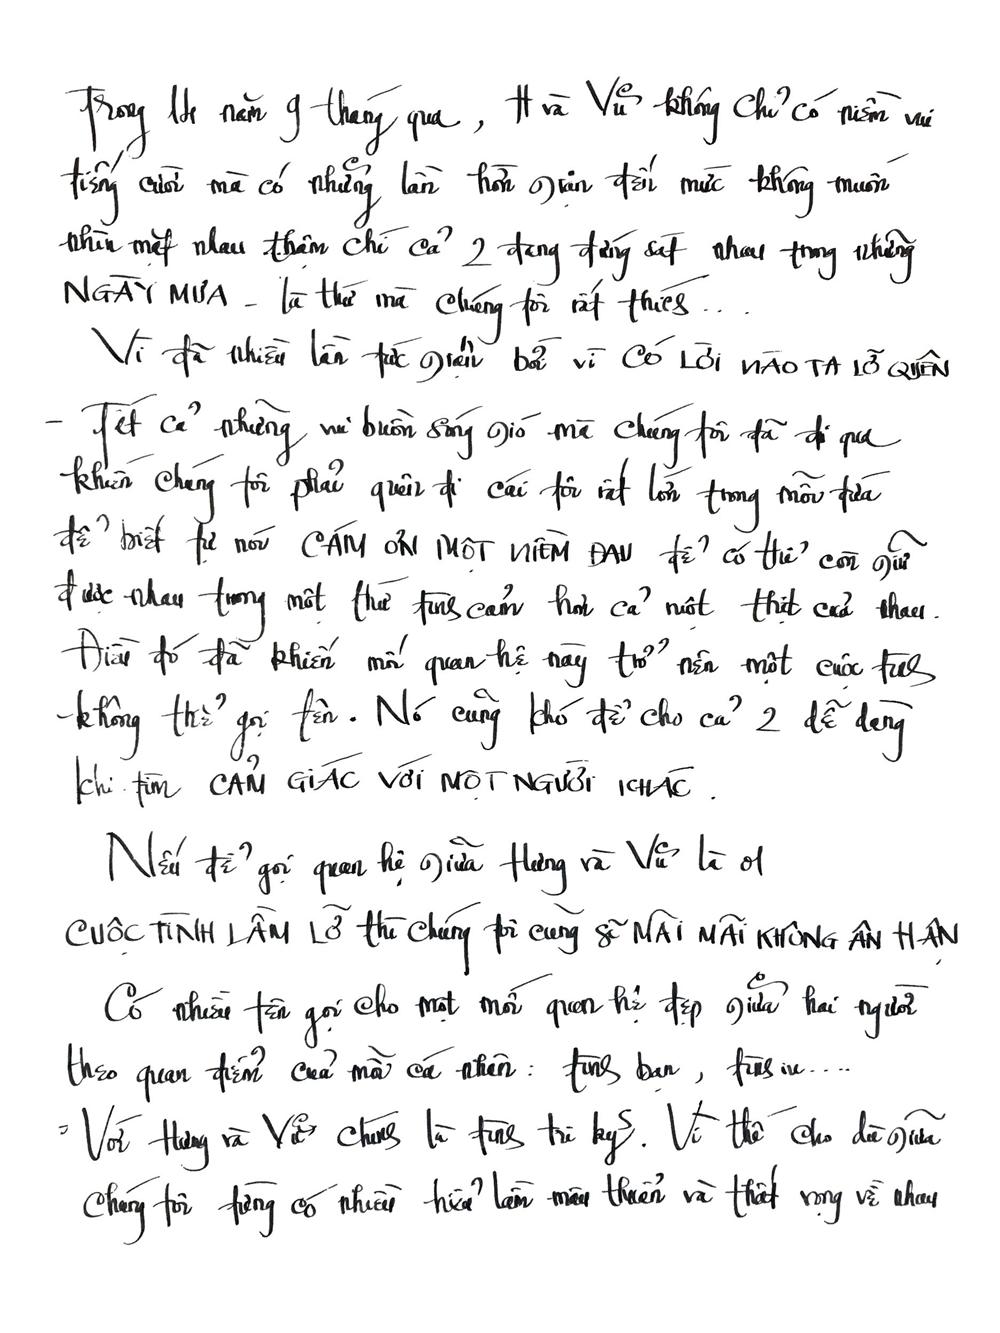 Trong 14 năm 9 tháng qua, H và Vũ không chỉ có niềm vui
tiếng cười mà có những lần hờn giận đến mức không muốn
nhìn mặt nhau thậm chí cả 2 đang đứng sát nhau trong những
NGÀY MƯA - là thứ mà chúng tôi rất thích....
Vì đã nhiều lần tức giận bởi vì CÓ LỜI NÀO TA LỠ QUÊN
- Tất cả những vui buồn sóng gió mà chúng tôi đã đi qua
khiến chúng tôi phải quên đi cái tôi rất lớn trong mỗi đứa
để biết tự nói CÁM ƠN MỘT NIỀM ĐAU để có thể còn giữ
được nhau trong một thứ tình cảm hơn cả ruột thịt của nhau.
Điều đó đã khiến mối quan hệ này trở nên một cuộc tình
không thể gọi tên. Nó cũng khó để cho cả 2 dễ dàng
khi tìm CẢM GIÁC VỚI MỘT NGƯỜI KHÁC.
Nếu để gọi quan hệ giữa Hưng và Vũ là 01
CUỘC TÌNH LẦM LỠ thì chúng tôi cũng sẽ MÃI MÃI KHÔNG ÂN HẬN
Có nhiều tên gọi cho một mối quan hệ đẹp giữa hai người
theo quan điểm của mỗi cá nhân: tình bạn, tình iu....
Với Hưng và Vũ chính là tình tri kỷ. Vì thế cho dù giữa
chúng tôi từng có nhiều hiểu lầm mâu thuẫn và thất vọng về nhau